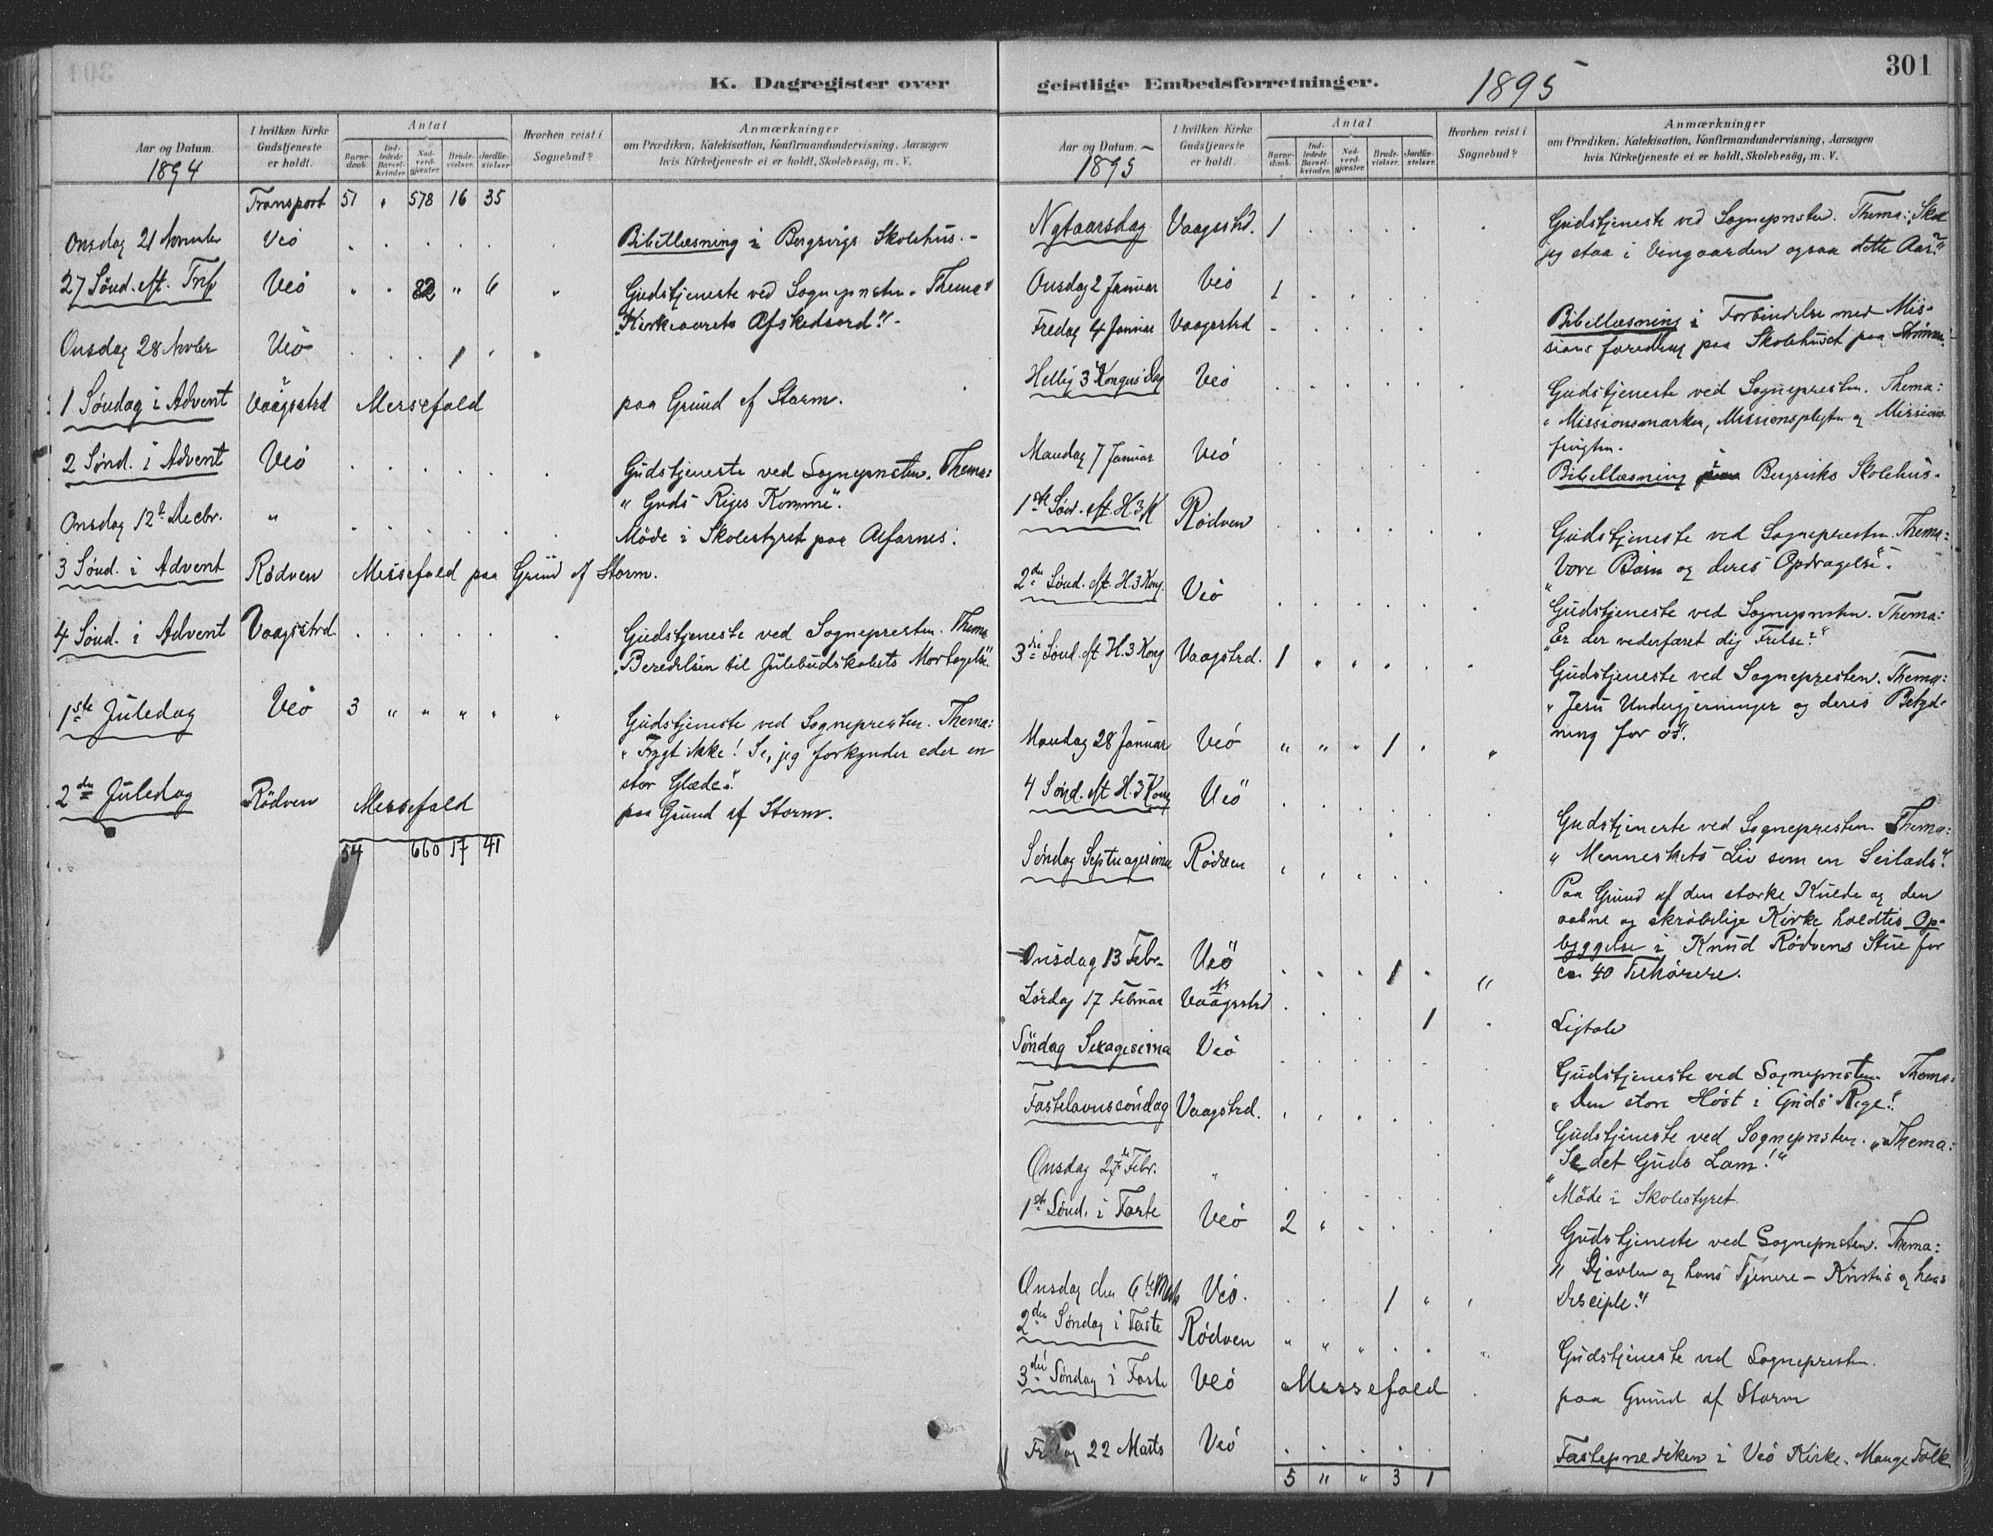 301
K. Dagregister over
Aar og Datum.
1894
I hvilken Kirke Gudstjeneste er holdt.
Antal
Barnedaab.
Indledede Barselkvinder.
Nadverdgjæster.
Brudevielser.
Jordfæstelser
Hvorhen reist i Sognebud?
Anmærkninger
om Prædiken, Katekisation, Konfirmandundervisning, Aarsagen
hvis Kirketjeneste ei er holdt, Skolebesög, m. V.
Transport 51 " 578 16 35
Onsdag 21 November Veö Bibellæsning i Bergsvigs Skolehus.-
27 Sönd. eft. Trf Veö " " 82 " 6 " Gudstjeneste ved Sognepresten. Thema "
Kirkeaarets Afskedsord".-
Onsdag 28 Novbr Veö 1
1 Söndag i Advent Vaagsstrd Messefald paa Grund af Storm.
2 Sönd. i Advent Veö Gudstjeneste ved Sognepresten. Thema:
"Guds Riges Komme".
Onsdag 12te Decbr. " Möde i Skolestyret paa Alfarnes.
3 Sönd. i Advent Rödven Messefald paa Grund af Storm.
4 Sönd. i Advent Vaagsstrd. Gudstjeneste ved Sognepresten. Thema
"Beredelsen til Julebudskabets Mortagelse".
1ste Juledag Veö 3 " " " " " Gudstjeneste ved Sognepresten. Thema:
"Frygt ikke! Se, jeg forkynder eder en
stor Glæde".
2den Juledag Rödven Messefald paa Grund af Storm.
54 660 17 41
geistlige Embedsforretninger. 1895
Aar og Datum.
1895
I hvilken Kirke Gudstjeneste er holdt.
Antal
Barnedaab.
Indledede Barselkvinder.
Nadverdgjæster.
Brudevielser.
Jordfæstelser
Hvorhen reist i Sognebud?
Anmærkninger
om Prædiken, Katekisation, Konfirmandundervisning, Aarsagen
hvis Kirketjeneste ei er holdt, Skolebesög, m. V.
Nytaarsdag Vaagsstrd. 1 Gudstjeneste ved Sognepresten. Thema: "Skal
jeg staa i Vingaarden ogsaa dette Aar?"
Onsdag 2 Januar Veö 1
Fredag 4 Januar Vaagsstrd - Bibellæsning i Forbindelse med Mis-
sions foredrag paa Skolehuset paa
Hellig 3 Kongers Dag Veö Gudstjeneste ved Sognepresten. Thema:
"Missionsmarken, Missionspligten og Missions
frugten.
Mandag 7 Januar Veö Bibellæsning i Bergsviks Skolehus.
1ste Sönd. eft. H. 3 K Rödven Gudstjeneste ved Sognepresten. Thema:
"Vore Børn og deres Opdragelse".
2den Sönd. eft. H. 3 Kong. Veö Gudstjeneste ved Sognepresten. Thema:
"Er der vederfaret dig Frelse?"
3die Sönd. eft H. 3 Kong Vaagstrd. 1 " " " Gudstjeneste ved Sognepresten. Thema:
"Jesu Undergjerninger og deres Betyd-
ning for os".
Mandag 28 Januar Veö " " " 1 "
4 Sönd. eft H. 3 Kong Veö Gudstjeneste ved Sognepresten Thema:
"Menneskets Liv som en Seilads".
Söndag Septuagesima Rödven Paa Grund af den sterke Kulde og den
aabne og skröbelige Kirke holdtes Op-
byggelse i Knud Rödvens Stue for
ca 40 Tilhørere.
Onsdag 13 Febr. Veö 1 "
Lördag 17 Februar Vaagsstrd 1 Ligtale
Söndag Sexagesima Veö Gudstjeneste ved Sognepresten Thema:
"Den store Höst i Guds Rige".
Fastelavnssöndag Vaagstrd. Gudstjeneste ved Sognepresten. Thema:
"Se det Guds Lam!"
Onsdag 27de Febr. " Möde i Skolestyret
1ste Sönd. i Faste Veö 2 " Gudstjeneste ved Sognepresten. Thema:
"Djævlen og hans Tjenere - Kristus og hans
Disciple."
Onsdag den 6te Marts Veö. 1 "
2den Söndag i Faste Rödven " " " Gudstjeneste ved Sognepresten.
3die Söndag i Faste Veö Messefald paa Grund af Storm
Fredag 22 Marts Veö Fasteprædiken i Veö Kirke. Mange Folk
5 " " 3 1